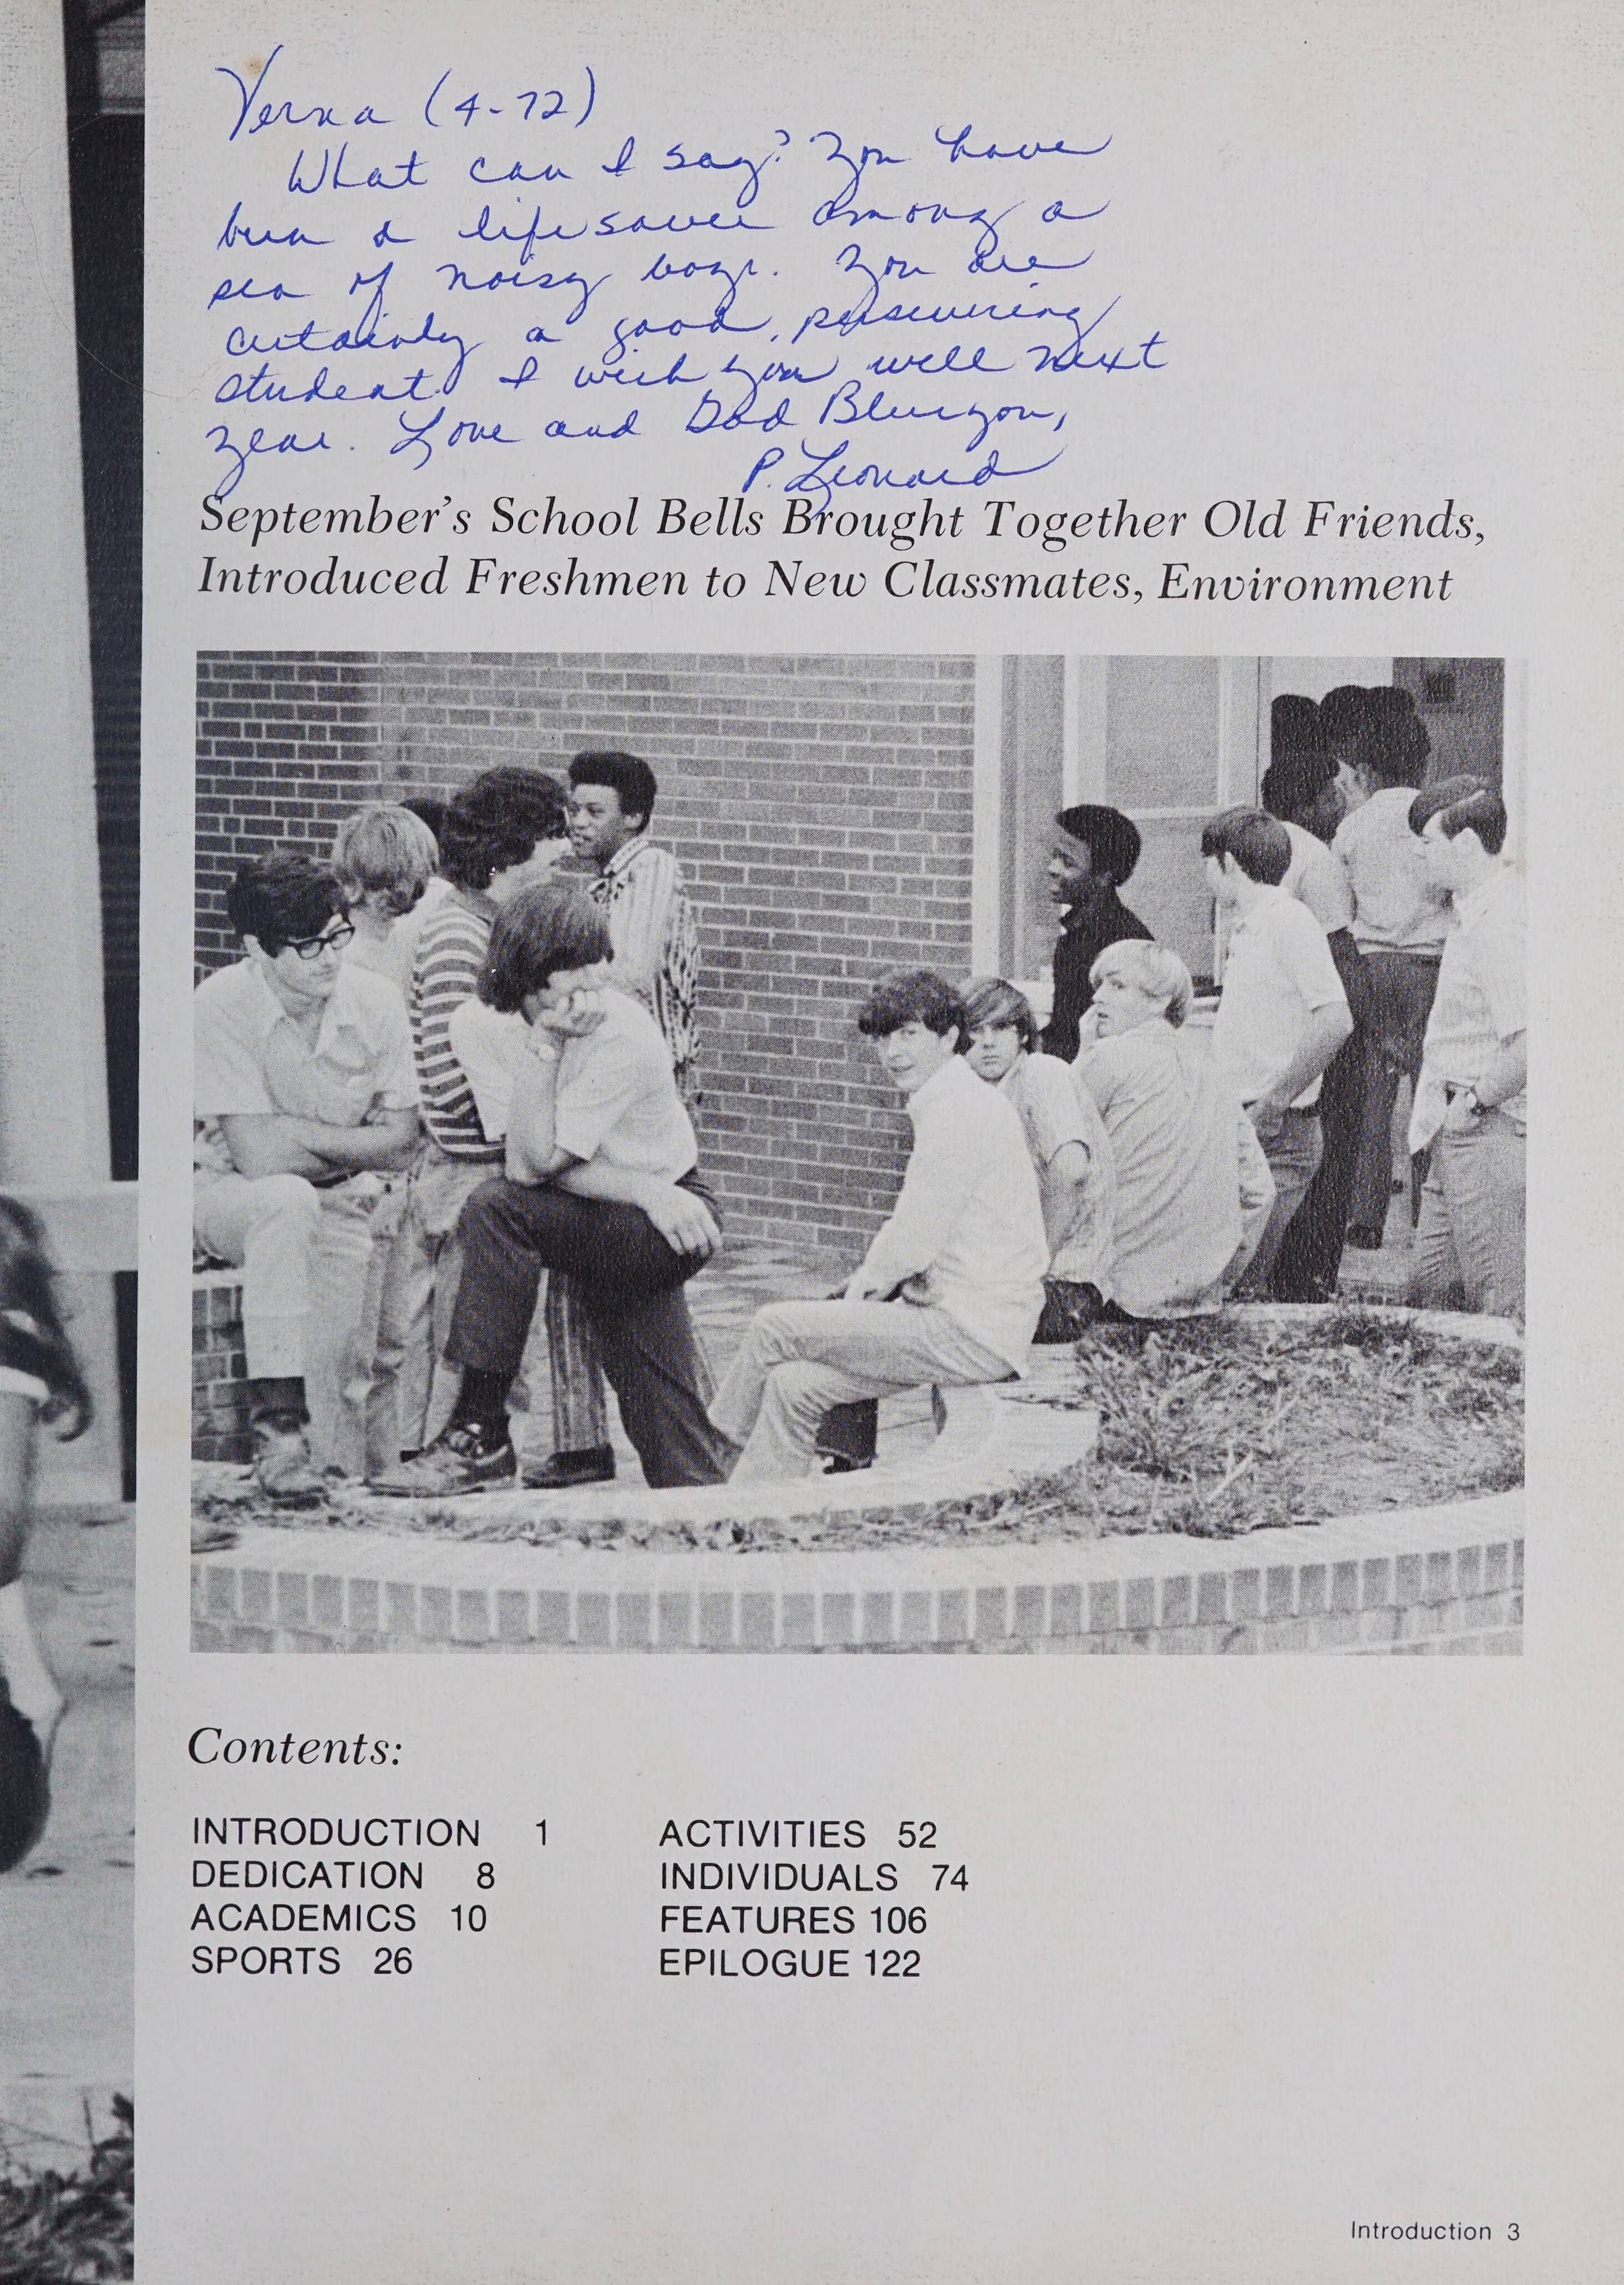 Verna (4-72)
What can I say? You have
been a lifesaver among a
sea of noisy boys. You are
certainly a good, persevering
student. I wish you well next
year. Love and God Bless you,
P. Leonard
September's School Bells Brought Together Old Friends,
Introduced Freshmen to New Classmates, Environment
Contents:
INTRODUCTION 1
DEDICATION 8
ACADEMICS 10
SPORTS 26
ACTIVITIES 52
INDIVIDUALS 74
FEATURES 106
EPILOGUE 122
Introduction 3